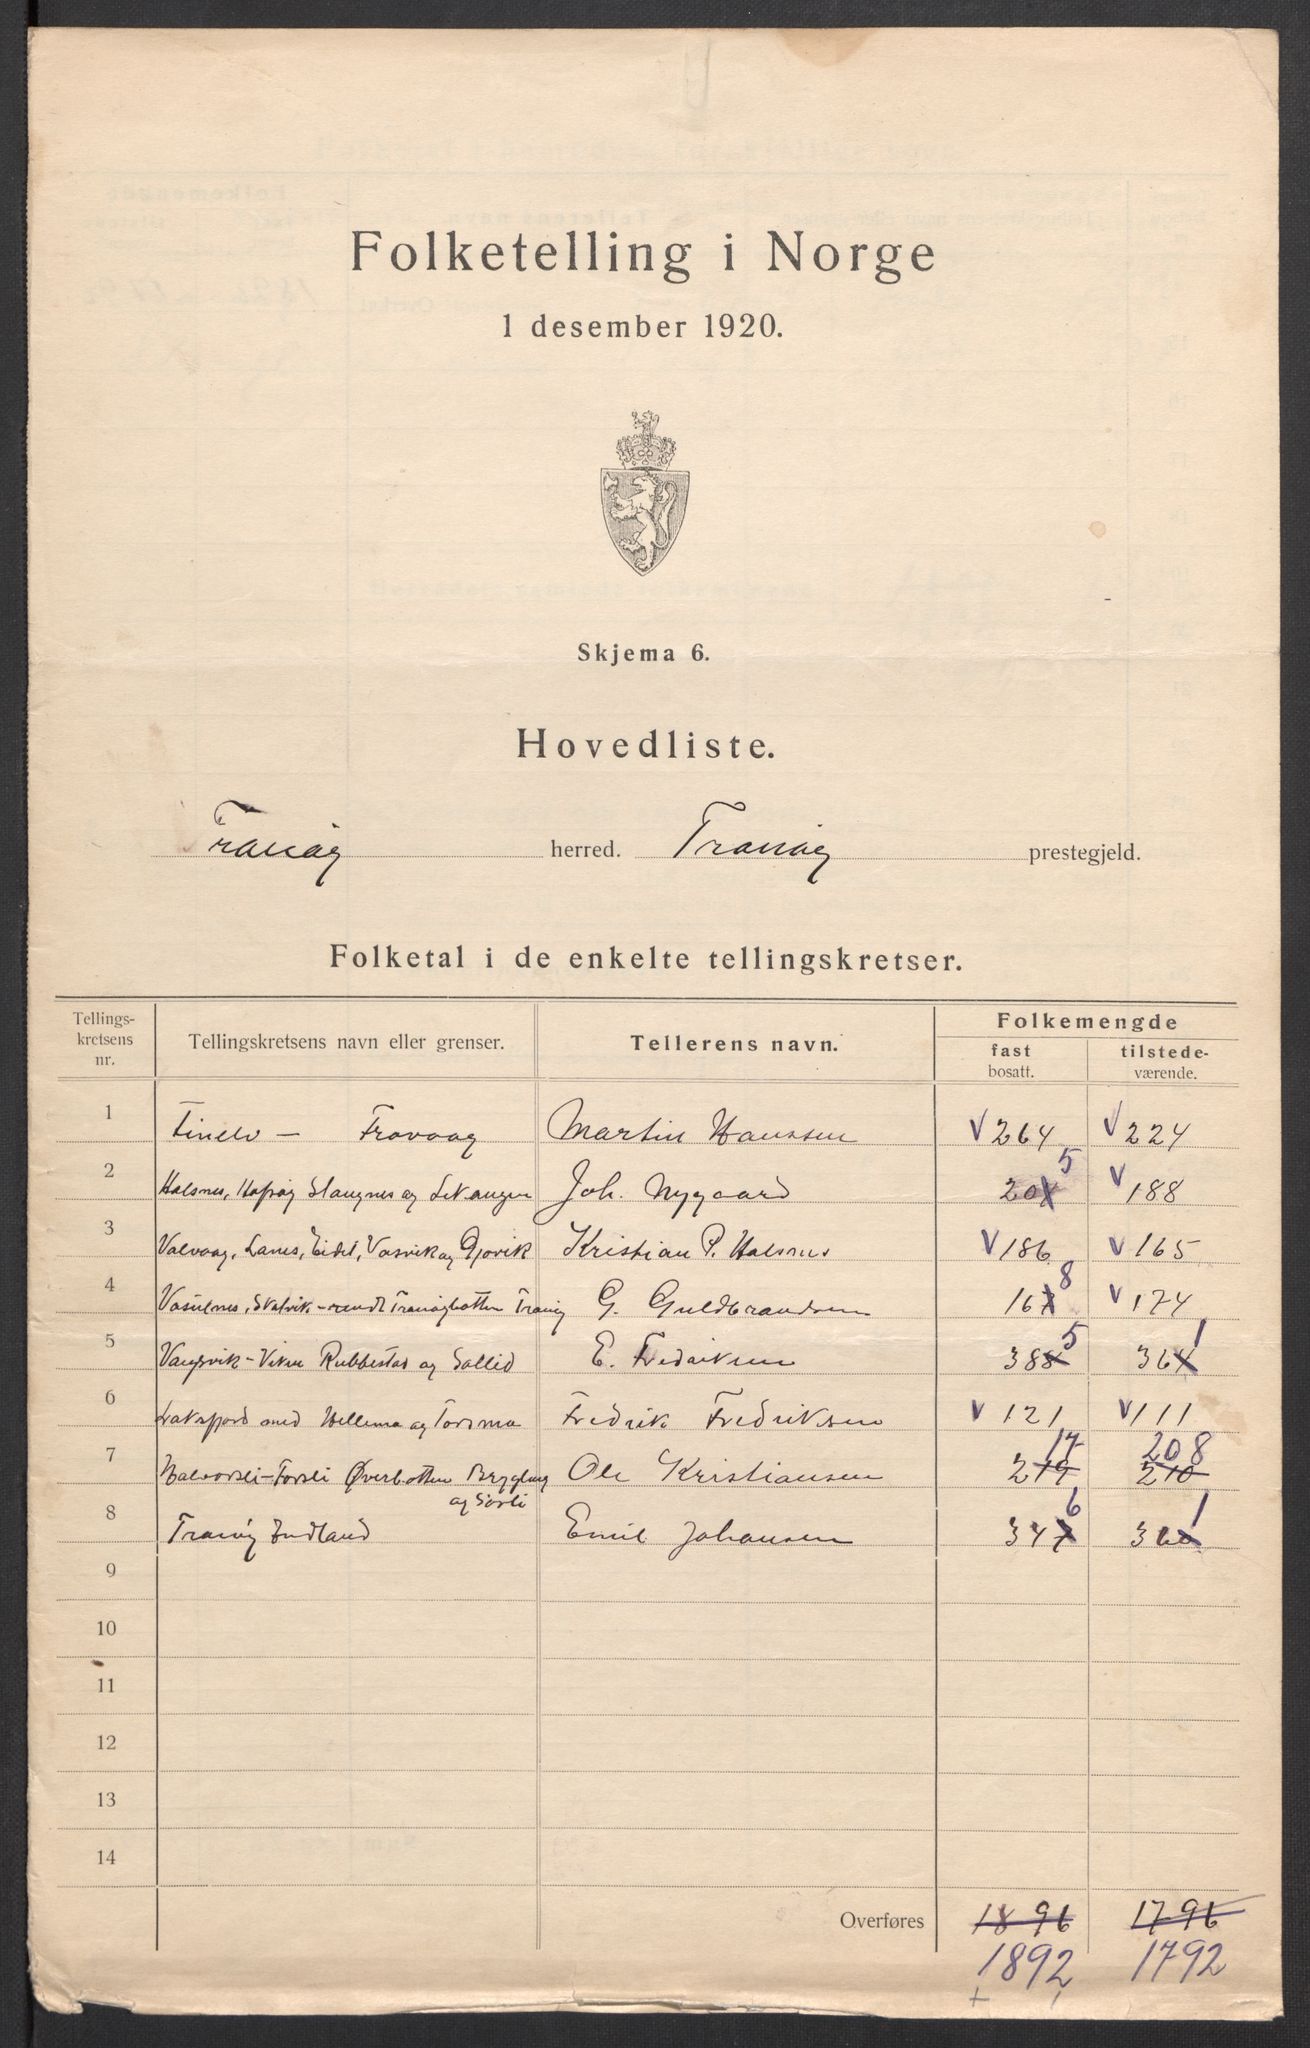 Folketelling i Norge
1 desember 1920.
Skjema 6.
Hovedliste.
Tranøy herred. Tranøy prestegjeld.
Folketal i de enkelte tellingskretser.
Tellings-
kretsens
nr.
Tellingskretsens navn eller grenser.
Tellerens navn.
Folkemengde
fast
bosatt.
tilstede-
værende.
1 Finelv – Frovaag Martin Hanssen V 264 V 224
2 Halsnes, Hofsøy Stangnes og Lekangen Joh. Nygaard 204 5 V 188
3 Valvaag, Lanes, Eidet, Vasvik og Gjovik Kristian P. Halsnes V 186 V 165
4 Skalvik – rundt Tranøybotten Tranøy G. Guldbrandsen 167 8 V 174
5 Vangsvik – Viken Rubbestad og Sollid E. Fredriksen 388 5 364 1
6 Laksfjord med Hellemo og Torsmo Fredrik Fredriksen V 121 V 111
7 Halvorsli – Forsli Øverbotten Brygghaug Ole Kristiansen 219 17 210 208
og Sørli
8 Tranøy Indland Emil Johansen 347 6 360 1
9
10
11
12
13
14
Overføres 1896 1796
1892 1792